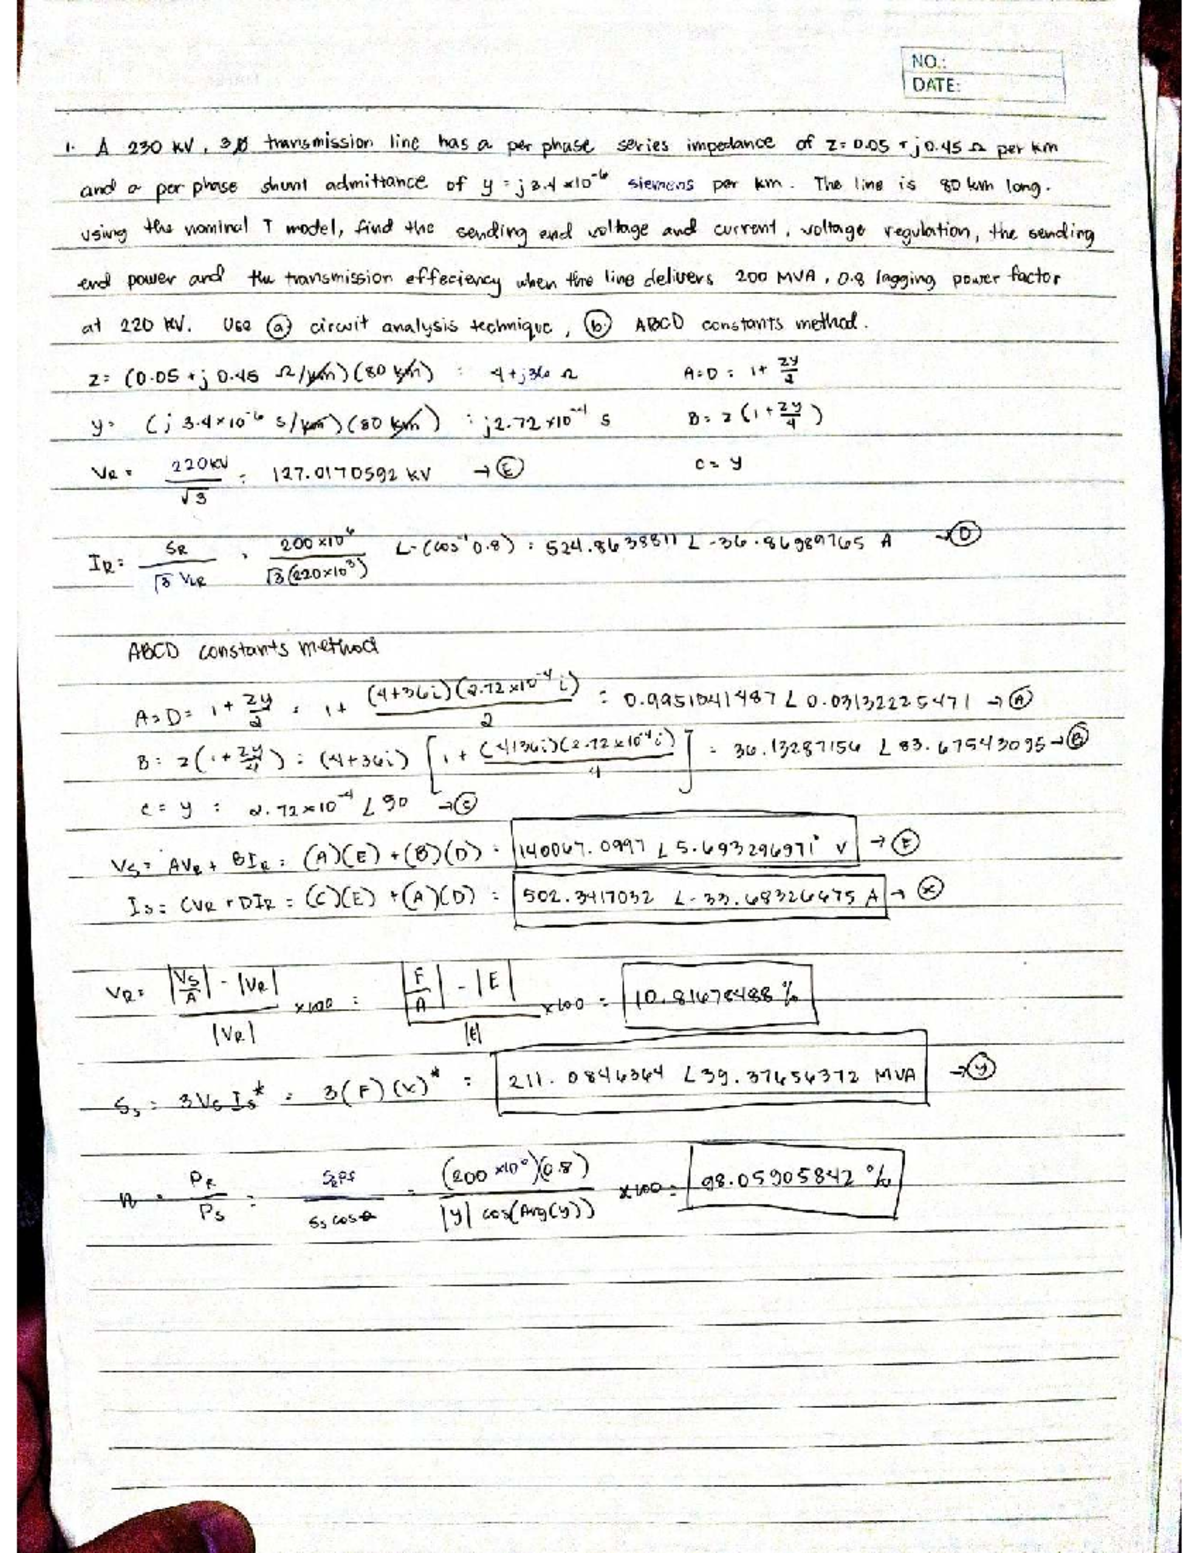 NO.:
DATE:
1. A 230 kV, 3Ø transmission line has a per phase series impedance of z= 0.05 + j0.45 Ω per km
and a per phase shunt admittance of y = j3.4 x10⁻⁶ siemens per km. The line is 80 km long.
Using the nominal T model, find the sending end voltage and current, voltage regulation, the sending
end power and the transmission effeciency when the line delivers 200 MVA, 0.8 lagging power factor
at 220 kV. Use (a) circuit analysis technique, (b) ABCD constants method.
z= (0.05 + j 0.45 Ω/km)(80 km) = 4+j36 Ω A=D = 1+ zy/2
y= (j 3.4 x10⁻⁶ s/km)(80 km) = j2.72 x10⁻⁴ s B= z(1+ zy/4)
VR = 220kV/√3 = 127.0170592 kV → (E) C= y
IR= SR/√3 VLR = 200x10⁶/√3(220x10³) ∠-(cos⁻¹0.8) = 524.8638811 ∠-36.86989765 A → (D)
ABCD constants method
A=D= 1+ zy/2 = 1+ (4+36i)(2.72x10⁻⁴i)/2 = 0.9951041487 ∠0.03132225471 → (A)
B= z(1+ zy/4) = (4+36i)[1+ (4+36i)(2.72x10⁻⁴i)/4] = 36.13287156 ∠83.67543095 → (B)
C= y = 2.72x10⁻⁴ ∠90 → (C)
VS= AVR + BIR = (A)(E) + (B)(D) = 140067.0997 ∠5.693296971° V → (F)
IS= CVR + DIR = (C)(E) + (A)(D) = 502.3417032 ∠-33.68326675 A → (X)
VR= |VS/A| - |VR| / |VR| x100 = |F/A| - |E| / |E| x100 = 10.81678488 %
SS= 3VS IS* = 3(F)(X)* = 211.0846364 ∠39.37656372 MVA → (Y)
n = PR/PS = SRPf/SS cosθ = (200x10⁶)(0.8)/|y| cos(Arg(y)) x100 = 98.05905842 %